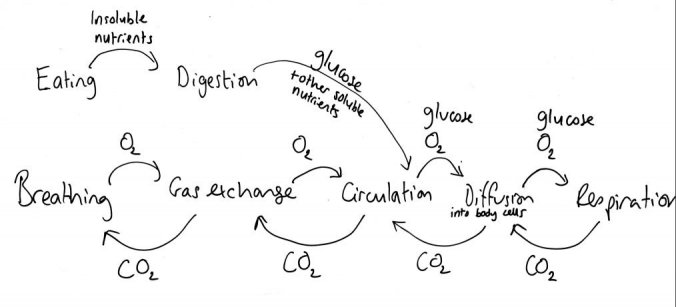 Insoluble
nutrients
Eating
Digestion
glucose
+other soluble
nutrients
glucose
O₂
glucose
O₂
O₂
O₂
Breathing
Gas exchange
Circulation
Diffusion
into body cells
Respiration
CO₂
CO₂
CO₂
CO₂